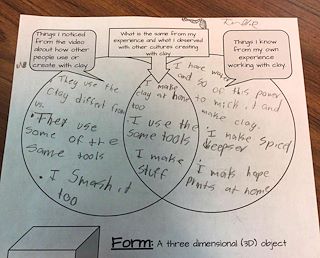 Things I noticed
from the video
about how other
people use or
create with clay
What is the same from my
experience and what I observed
with other cultures creating
with clay
Things I know
from my own
experience
working with clay
They use the
clay diffent from
us.
• They use
some of the
same tools
• I Smash it
too
I make
clay at home
too
I use the
same tools
I make
stuff
I have
and so of this power
to mich it and
make clay.
I make spied
I make
prints at home
Form: A three dimensional (3D) object